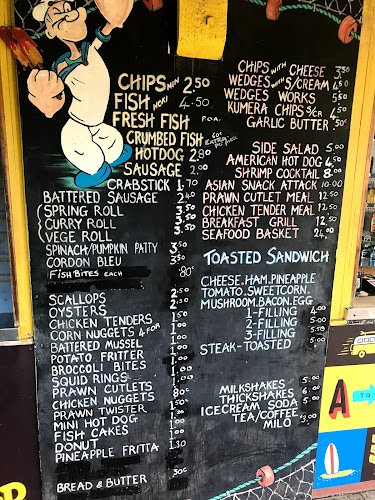 CHIPS MIN 2.50
FISH HOKI 4.50
FRESH FISH P.O.A.
CRUMBED FISH 60¢ EXTRA PER PIECE
HOTDOG 2.80
SAUSAGE 2.00
CRABSTICK 1.70
BATTERED SAUSAGE 2.40
SPRING ROLL 3.50
CURRY ROLL 3.50
VEGE ROLL 3.50
SPINACH/PUMPKIN PATTY 3.50
CORDON BLEU 3.50
FISH BITES EACH .80¢
SCALLOPS 2.50
OYSTERS 2.50
CHICKEN TENDERS
CORN NUGGETS 4 FOR 1.00
BATTERED MUSSEL 1.00
POTATO FRITTER 1.00
BROCCOLI BITES 1.00
SQUID RINGS 1.00
PRAWN CUTLETS
CHICKEN NUGGETS 80¢
PRAWN TWISTER
MINI HOT DOG 1.00
FISH CAKES 1.00
DONUT 1.00
PINEAPPLE FRITTA 1.30
BREAD & BUTTER 30¢
CHIPS WITH CHEESE 3.50
WEDGES WITH S/CREAM 4.50
WEDGES WORKS 5.50
KUMERA CHIPS S/CR 4.50
GARLIC BUTTER .50¢
SIDE SALAD 5.00
AMERICAN HOT DOG 4.50
SHRIMP COCKTAIL 8.00
ASIAN SNACK ATTACK 10.00
PRAWN CUTLET MEAL 12.50
CHICKEN TENDER MEAL 12.50
BREAKFAST GRILL 12.50
SEAFOOD BASKET 24.00
TOASTED SANDWICH
CHEESE.HAM.PINEAPPLE
TOMATO.SWEETCORN.
MUSHROOM.BACON.EGG
1-FILLING 4.00
2-FILLING 4.50
3-FILLING 5.00
STEAK-TOASTED 5.00
MILKSHAKES 5.00
THICKSHAKES 6.00
ICECREAM SODA 5.00
TEA/COFFEE
MILO 3.00
A TO